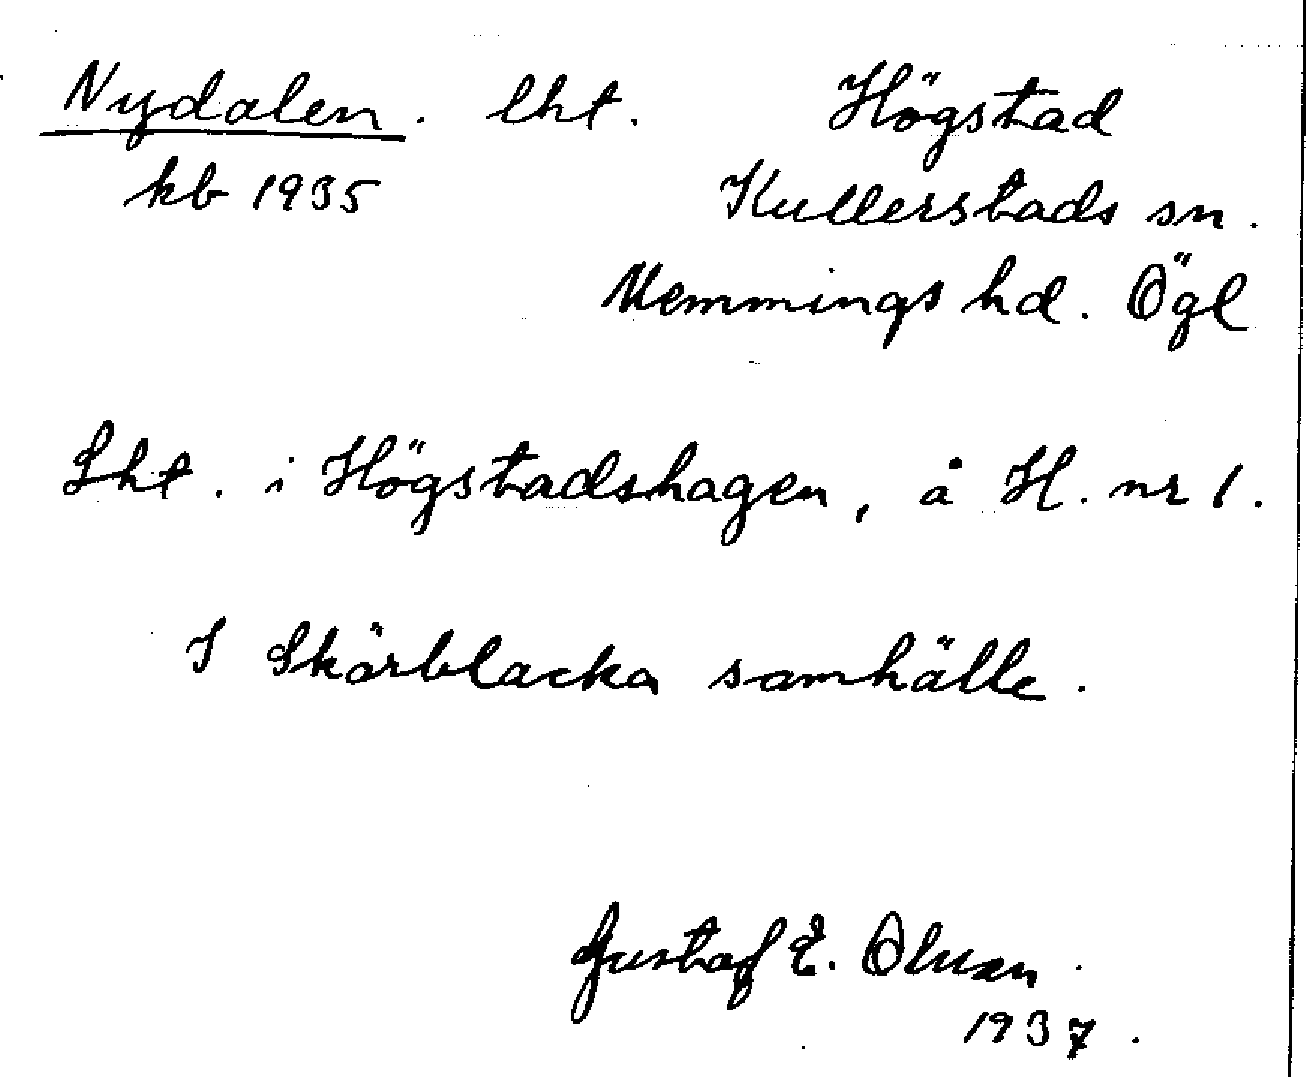 Nydalen. lht. Högstad
kb 1935 Kullerstads sn.
Memmings hd. Ögl
Lht. i Högstadshagen, å H. nr 1.
I Skärblacka samhälle.
Gustaf E.
1937.